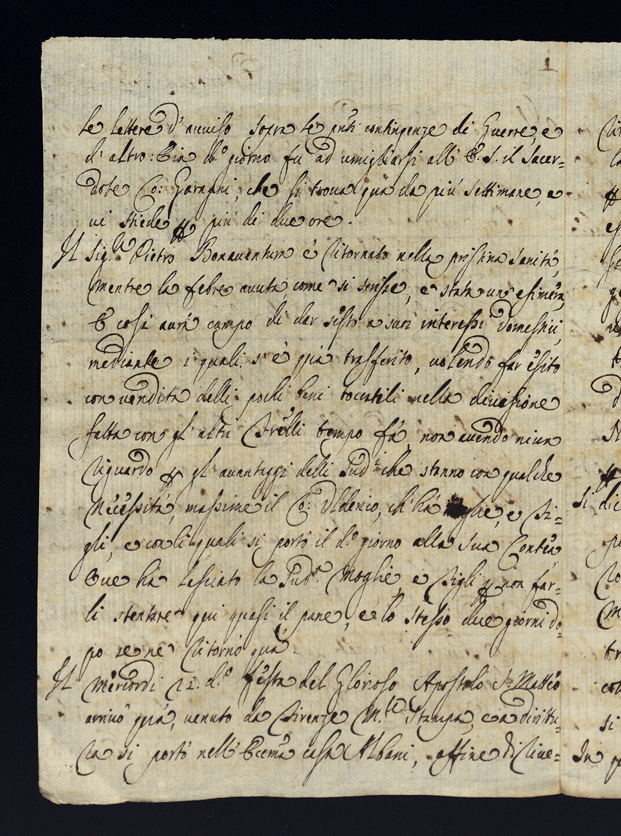 1
le lettere d'auuiso sopra le pnti contingenze di Guerre, e
d'altro: Era d.º giorno fu ad umigliarsi all' E. S. il Sacer-
dote Co: Garapni, che si troua qua da più settimane, e
ui stiede più di due ore.
Il Sig.r Pietro Bonauentura è ritornato nella pristina sanità,
mentre la febre auuta come si scrisse, e stata un' efimera,
E così aurà campo di dar sisto a suoi interessi domestici,
mediante i quali s'è già trasferito, uolendo far èsito
con uendita delli pochi beni toccatili nella diuisione
fatta con gl' altri Frèlli tempo fà, non auendo niun
riguardo gl' auantaggi delli Sud.i che stanno con qualche
Necèssità, massime il Co: Olderico, ch'hà moglie, e Fi-
gli, e con li quali si portò il d.º giorno alla Sua Contèa
Oue hà lasciato la Sud.a Moglie e Figli non far-
li stentare qui quasi il pane, e lo stesso due giorni do-
po se ne ritornò quà.
Il Mercordì 21. d.º festa del Glorioso Apostolo S. Matteo
arriuò quà, uenuto da Firenze M.r Stampa, e a diritu-
ra si portò nell' Eccma casa Albani, affine di riue-